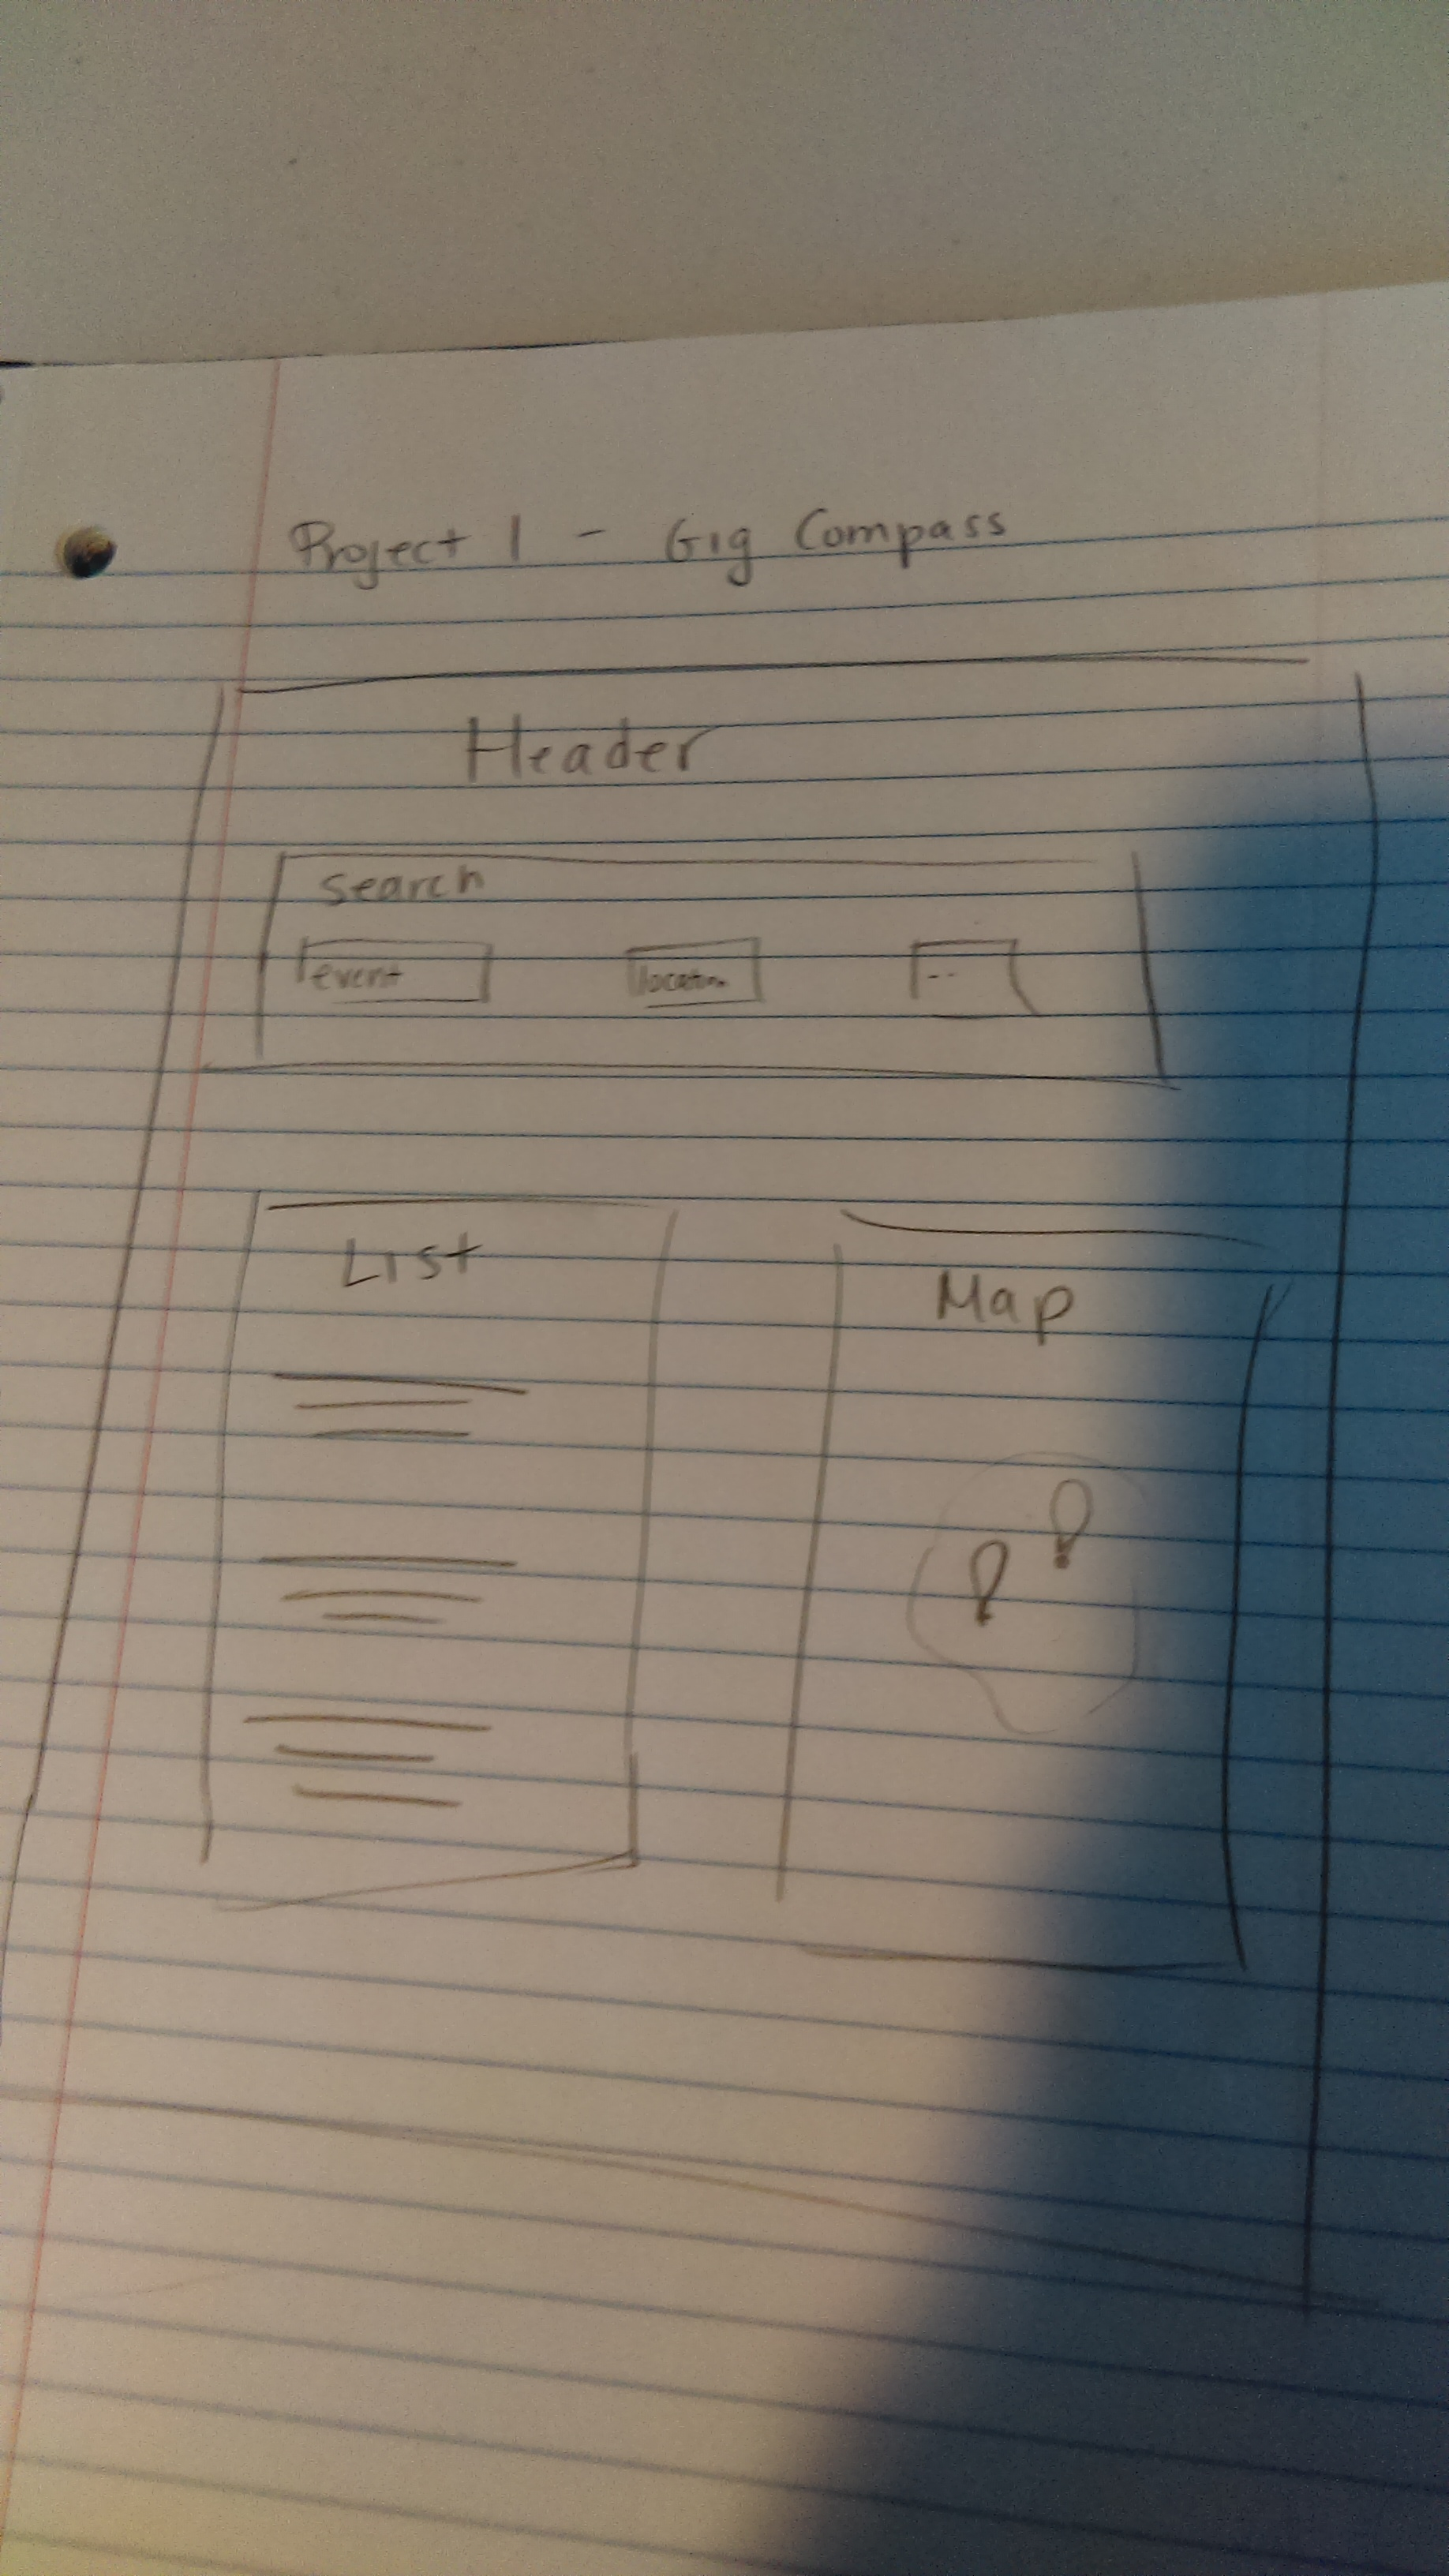 Project 1 - Gig Compass
Header
Search
event
location
--
List
Map